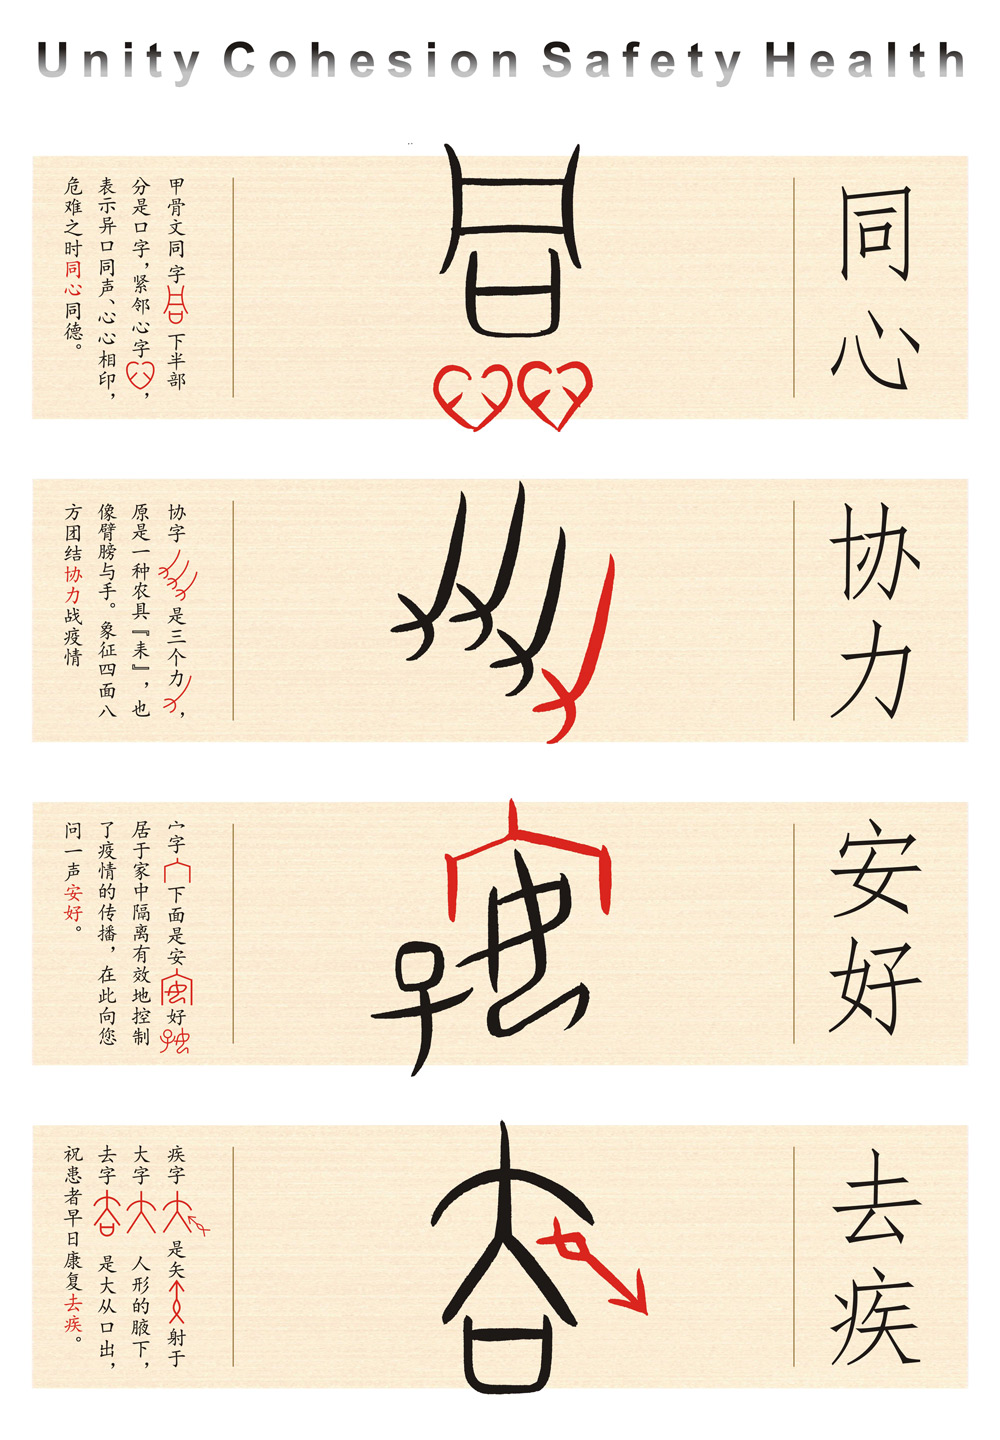 Unity Cohesion Safety Health
同心
甲骨文同字下半部
分是口字，紧邻心字，
表示异口同声、心心相印，
危难之时同心同德。
协力
协字是三个力，
原是一种农具『耒』，也
像臂膀与手。象征四面八
方团结协力战疫情
安好
宀字下面是安好
居于家中隔离有效地控制
了疫情的传播，在此向您
问一声安好。
去疾
疾字是矢射于
大字人形的腋下，
去字是大从口出，
祝患者早日康复去疾。